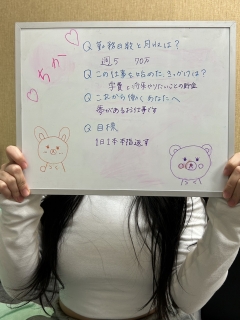 Q 勤務日数と月収は?
週5 70万
Q この仕事を始めた、きっかけは?
学費と将来やりたいことの貯金
Q これから働くあなたへ
夢があるお仕事です
Q 目標
1日1本本指返す